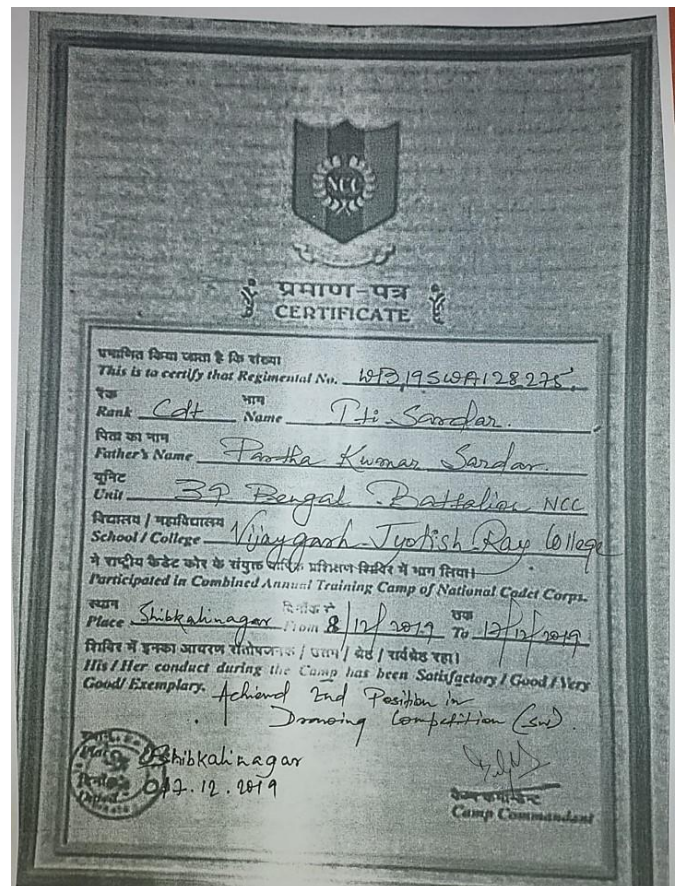 NCC
प्रमाण-पत्र
CERTIFICATE
प्रमाणित किया जाता है कि संख्या
This is to certify that Regimental No. WB19SWA128275
रैंक नाम
Rank Cdt Name Iti Sardar.
पिता का नाम
Father's Name Partha Kumar Sardar.
यूनिट
Unit 37 Bengal Battalion NCC
विद्यालय / महाविद्यालय
School / College Vijaygarh Jyotish Ray College
ने राष्ट्रीय कैडेट कोर के संयुक्त वार्षिक प्रशिक्षण शिविर में भाग लिया।
Participated in Combined Annual Training Camp of National Cadet Corps.
स्थान दिनाँक से तक
Place Shibkalinagar From 8/12/2019 To 17/12/2019
शिविर में इनका आचरण संतोषजनक / उत्तम / श्रेष्ठ / सर्वश्रेष्ठ रहा।
His / Her conduct during the Camp has been Satisfactory / Good / Very
Good/ Exemplary. Achieved 2nd Position in
Drawing Competition (SW).
Shibkalinagar
17.12.2019
Camp Commandant